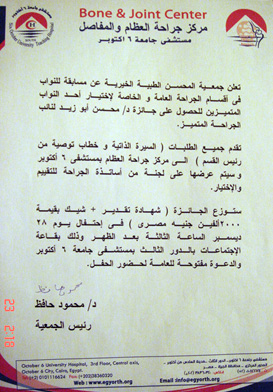 Bone & Joint Center
مركز جراحة العظام والمفاصل
مستشفى جامعة ٦ اكتوبر
تعلن جمعية المحسن الطبية الخيرية عن مسابقة للنواب
فى أقسام الجراحة العامة و الخاصة لإختيار أحد النواب
المتميزين للحصول على جائزة د/ محسن أبو زيد لنائب
الجراحة المتميز.
تقدم جميع الطلبات ( السيرة الذاتية و خطاب توصية من
رئيس القسم ) الى مركز جراحة العظام بمستشفى ٦ أكتوبر
و سيتم عرضها على لجنة من أساتذة الجراحة للتقييم
والإختيار.
ستوزع الجائزة ( شهادة تقدير + شيك بقيمة
٢٠٠٠ألفين جنيه مصرى ) فى إحتفال يوم ٢٨
ديسمبر الساعة الثالثة بعد الظهر وذلك بقاعة
الإجتماعات بالدور الثالث بمستشفى جامعة ٦ أكتوبر
والدعوة مفتوحة للعامة لحضور الحفل.
د/ محمود حافظ
رئيس الجمعية
October 6 University Hospital, 3rd Floor, Central axis,
October 6 City, Cairo, Egypt.
Web : www.egyorth.com
Email :info@egyorth.com